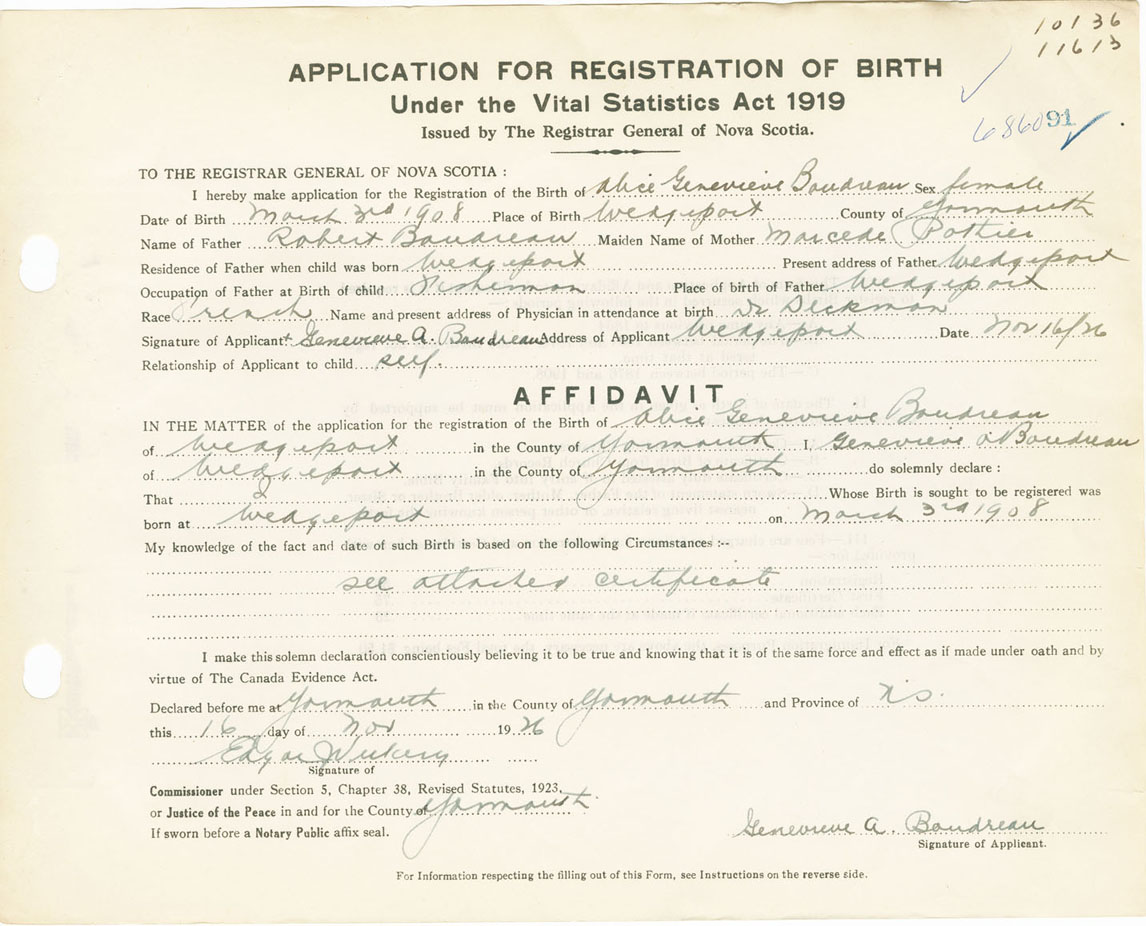 10136
11613
APPLICATION FOR REGISTRATION OF BIRTH
Under the Vital Statistics Act 1919
686091
Issued by The Registrar General of Nova Scotia.
TO THE REGISTRAR GENERAL OF NOVA SCOTIA :
I hereby make application for the Registration of the Birth of Alice Genevieve Boudreau Sex female
Date of Birth March 3rd 1908 Place of Birth Wedgeport County of Yarmouth
Name of Father Robert Boudreau Maiden Name of Mother Marcede Pothier
Residence of Father when child was born Wedgeport Present address of Father Wedgeport
Occupation of Father at Birth of child Fisherman Place of birth of Father Wedgeport
Race French Name and present address of Physician in attendance at birth Dr
Signature of Applicant Genevieve A. Boudreau Address of Applicant Wedgeport Date Nov 16/26
Relationship of Applicant to child self.
AFFIDAVIT
IN THE MATTER of the application for the registration of the Birth of Alice Genevieve Boudreau
of Wedgeport in the County of Yarmouth I, Genevieve a Boudreau
of Wedgeport in the County of Yarmouth do solemnly declare :
That I Whose Birth is sought to be registered was
born at Wedgeport on March 3rd 1908
My knowledge of the fact and date of such Birth is based on the following Circumstances :--
see attached certificate
I make this solemn declaration conscientiously believing it to be true and knowing that it is of the same force and effect as if made under oath and by
virtue of The Canada Evidence Act.
Declared before me at Yarmouth in the County of Yarmouth and Province of N.S.
this 16 day of Nov 1926
Edgar
Signature of
Commissioner under Section 5, Chapter 38, Revised Statutes, 1923,
or Justice of the Peace in and for the County of Yarmouth
If sworn before a Notary Public affix seal.
Genevieve A. Boudreau
Signature of Applicant.
For Information respecting the filling out of this Form, see Instructions on the reverse side.